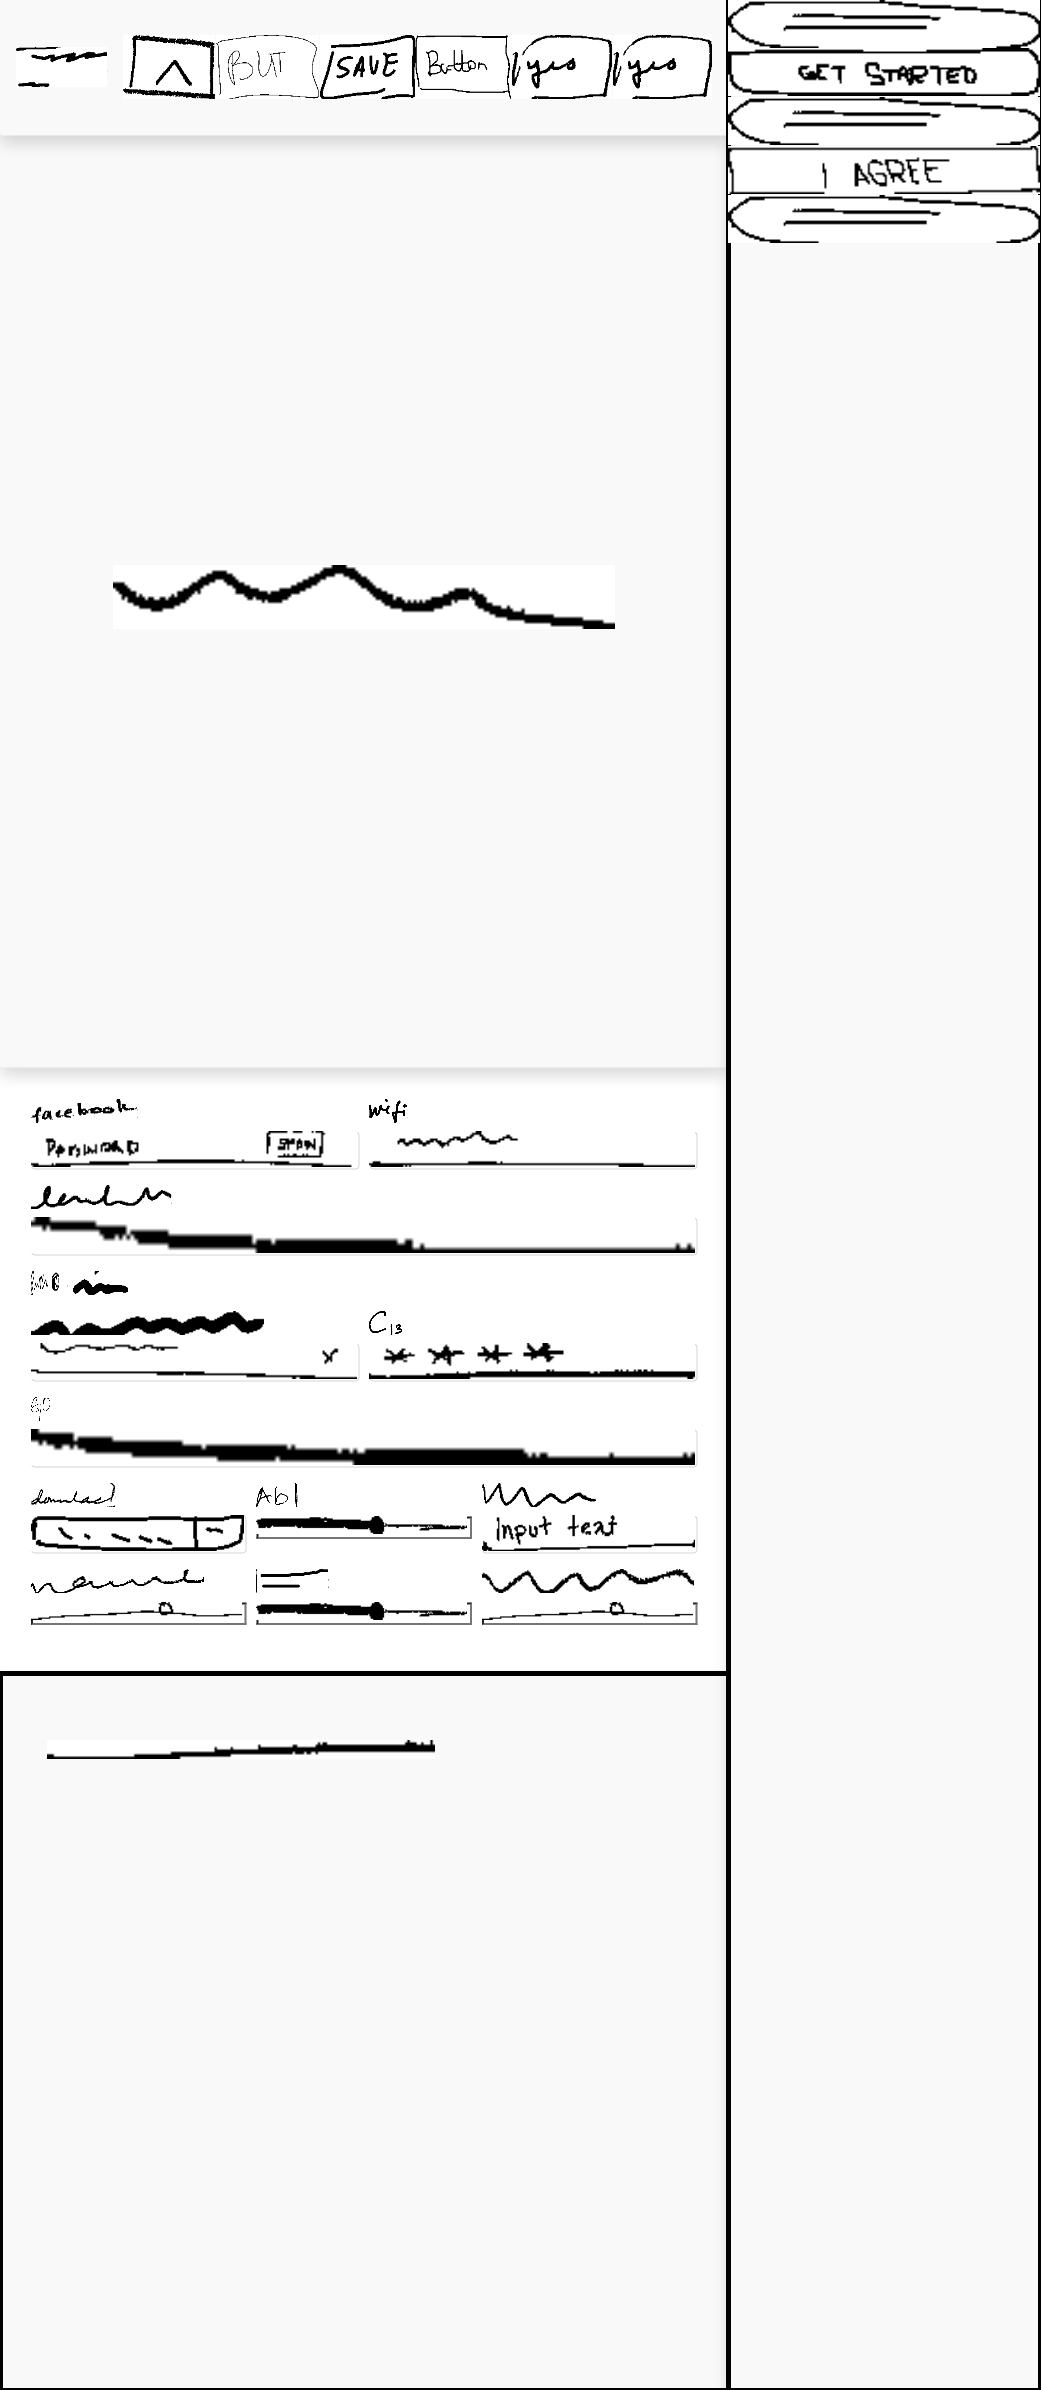 BUT SAVE Button yes yes
GET STARTED
I AGREE
facebook wifi
PASSWORD SHOW
C13
download Abl
Input text
name